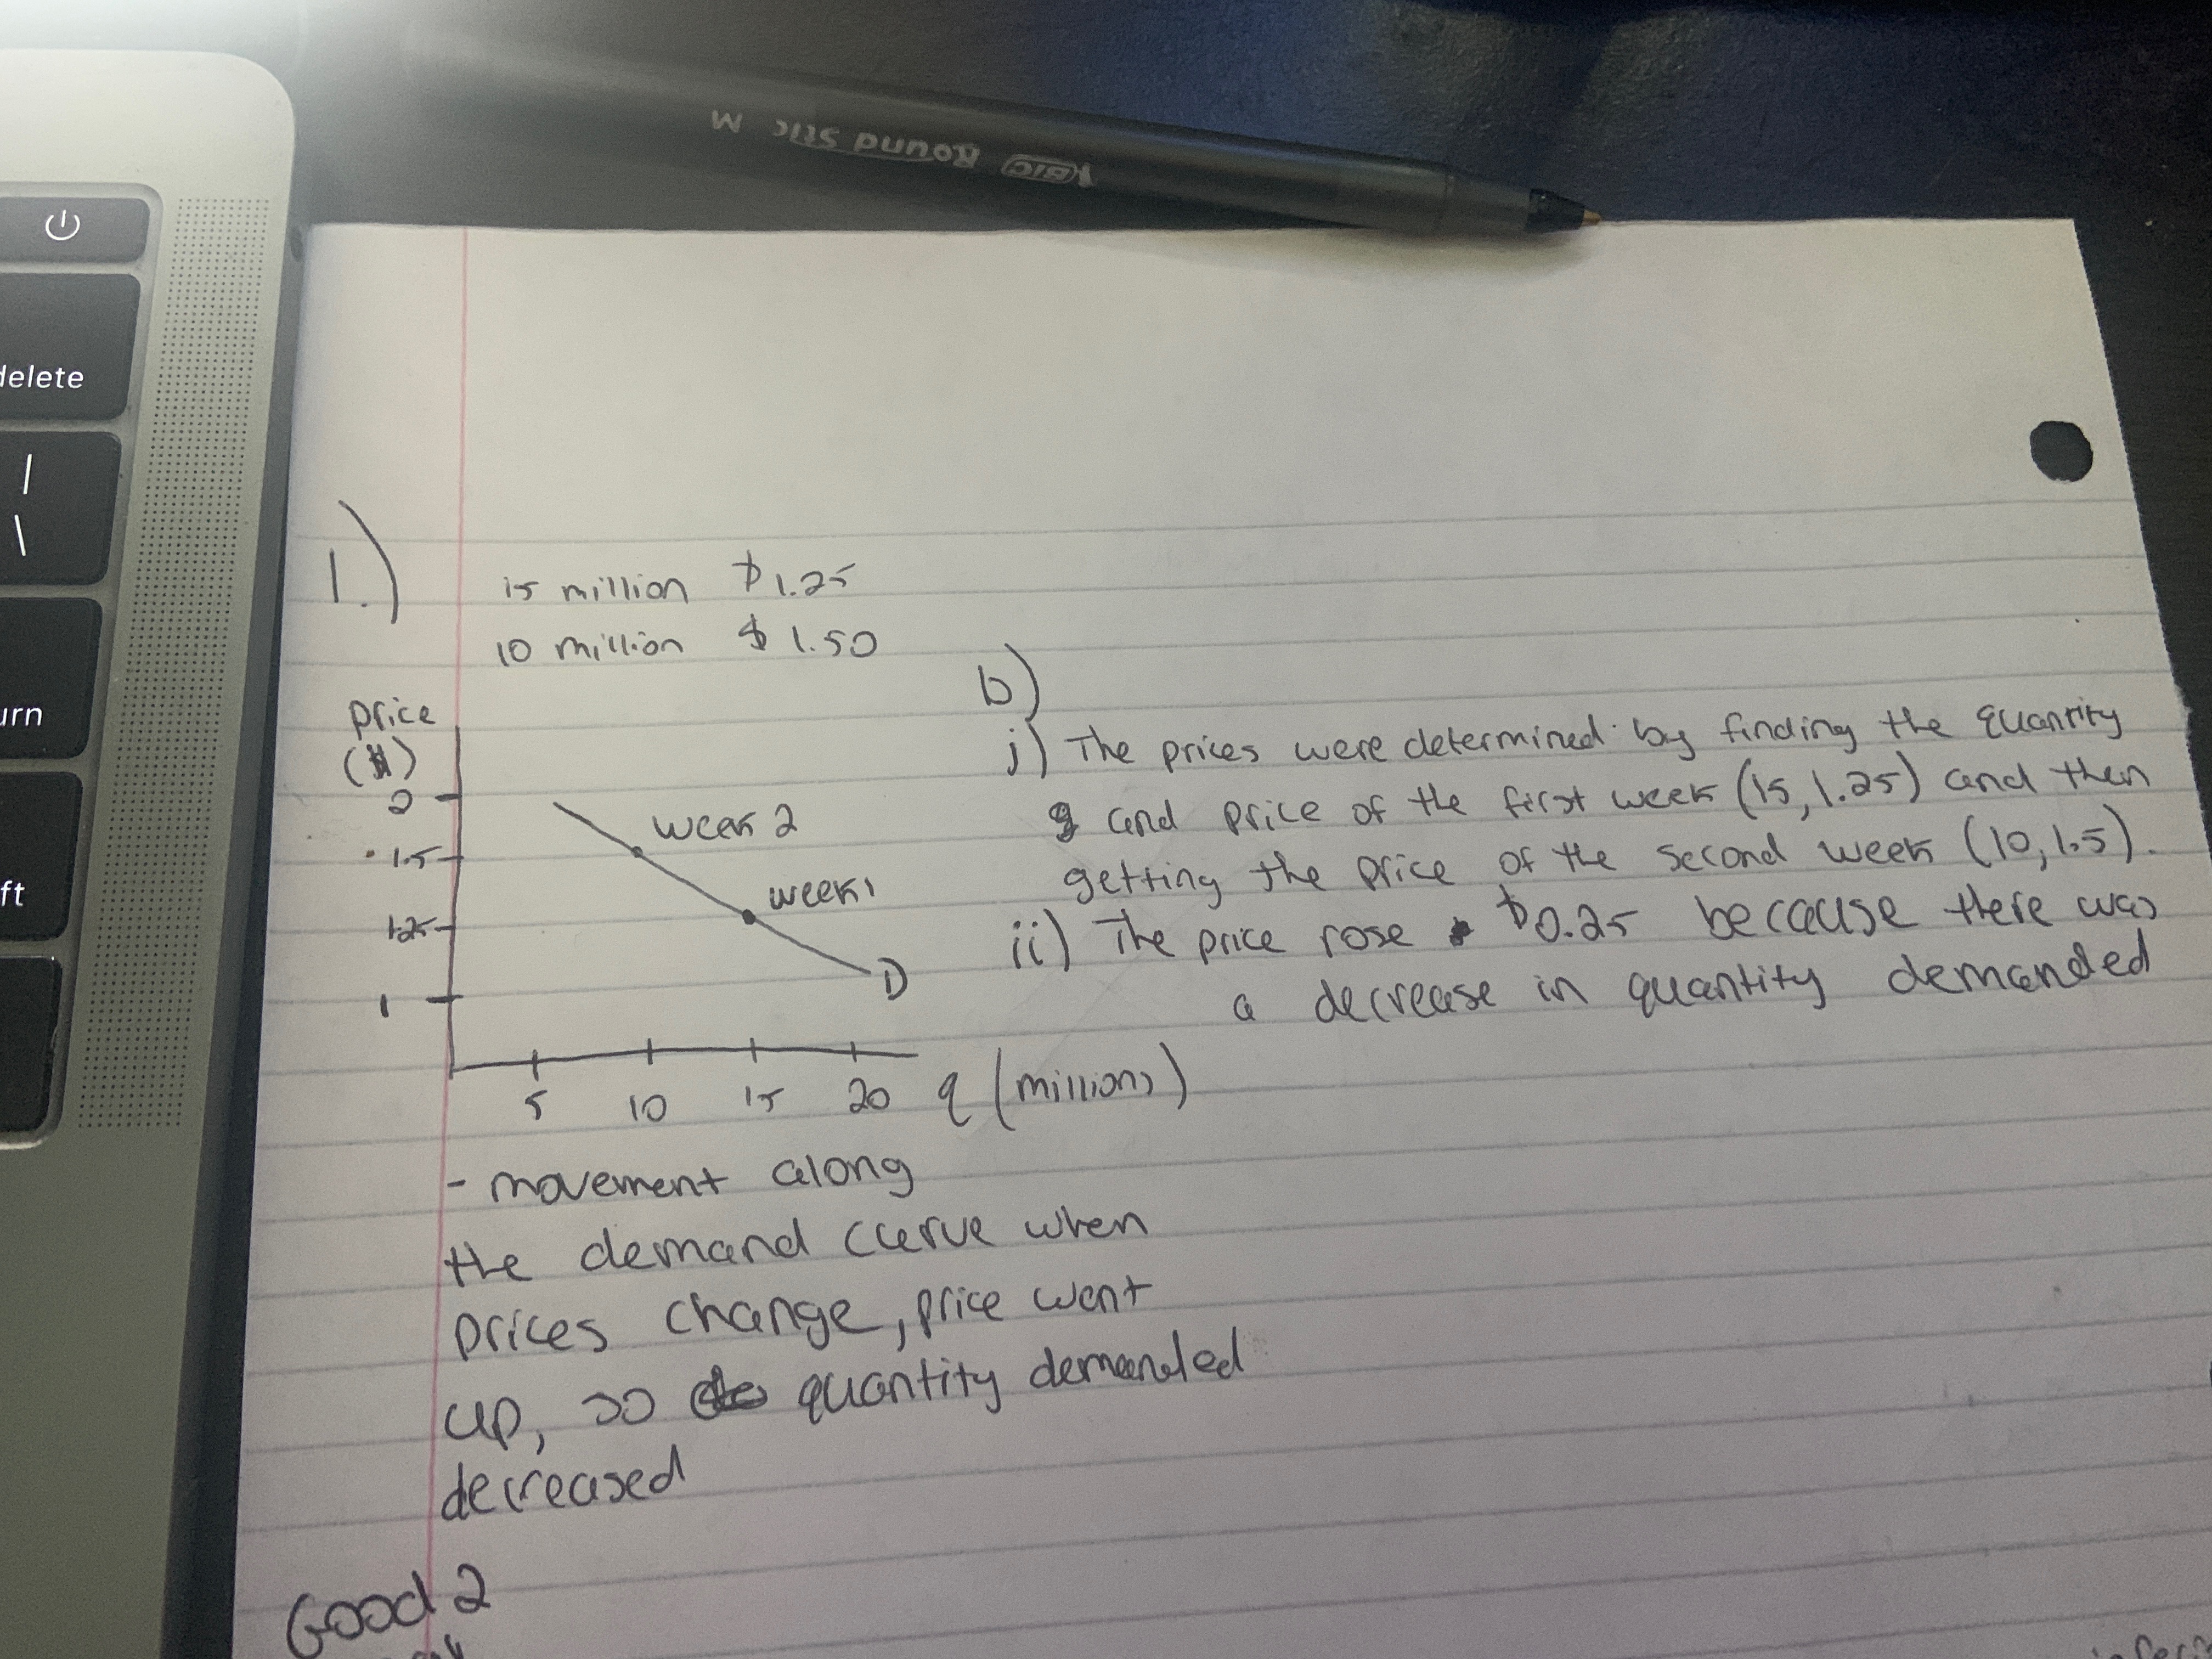 BIC Round Stic M
delete
|
\
urn
ft
1.)
15 million $1.25
10 million $1.50
price
($)
2
1.5
1.25
1
week 2
week 1
D
5 10 15 20 q (millions)
- movement along
the demand curve when
prices change, price went
up, so quantity demanded
decreased
b)
i) The prices were determined by finding the quantity
and price of the first week (15, 1.25) and then
getting the price of the second week (10, 1.5).
ii) The price rose $0.25 because there was
a decrease in quantity demanded
Good 2